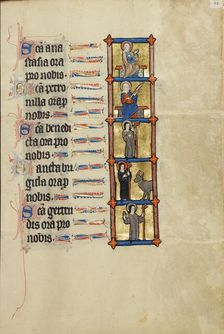 Scā ana
stasia ora
pro nobis.
Scā petro
nilla oraꝓ
nobis.
Scā benedi
cta ora pro
nobis.
Sancta bri
gida ora pro
nobis.
Scā gertru
dis ora pro
nobis.